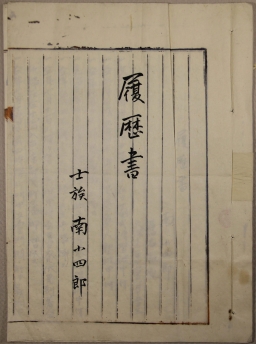 履歴書
士族 南小四郎